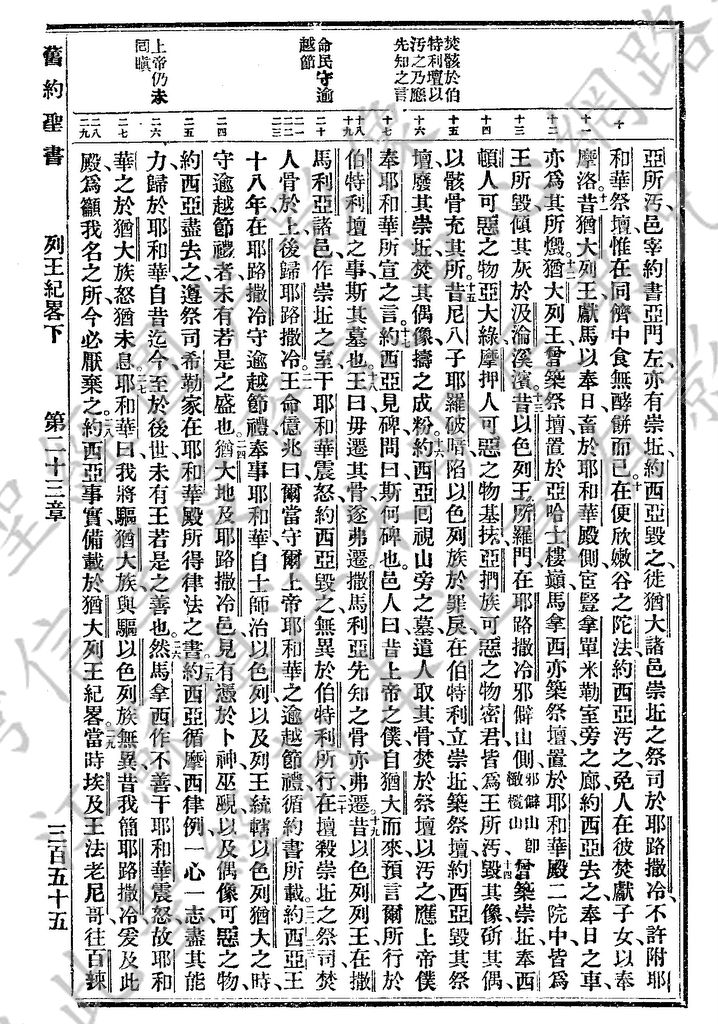 焚骸於伯
特利壇以
汚之乃應
先知之言
命民守逾
越節
上帝仍未
回瞋
十
十一
十二
十三
十四
十五
十六
十七
十八
十九
二十
二一
二二
二三
二四
二五
二六
二七
二八
二九
亞所汚邑宰約書亞門左亦有崇坵、約西亞毀之、徙猶大諸邑崇坵之祭司於耶路撒冷、不許附耶
和華祭壇、惟在同儕中食無酵餅而已。十在便欣嫩谷之陀法、約西亞汚之、免人在彼焚獻子女、以奉
摩洛。十一昔猶大列王獻馬以奉日、畜於耶和華殿側、宦豎拿單米勒室旁之廊、約西亞去之、奉日之車、
亦爲其所燬。十二猶大列王曾築祭壇、置於亞哈士樓巔、馬拿西亦築祭壇、置於耶和華殿二院中、皆爲
王所毀、傾其灰於汲淪溪濱。十三昔以色列王所羅門在耶路撒冷邪僻山側、邪僻山卽橄欖山、曾築崇坵、奉西
頓人可惡之物亞大綠、摩押人可惡之物基抹、亞捫族可惡之物密君、皆爲王所汚、十四毀其像、斫其偶、
以骸骨充其所。十五昔尼八子耶羅破暗陷以色列族於罪戾、在伯特利立崇坵、築祭壇、約西亞毀其祭
壇、廢其崇坵、焚其偶像、擣之成粉。十六約西亞回視山旁之墓、遣人取其骨、焚於祭壇以汚之、應上帝僕
奉耶和華所宣之言。十七約西亞見碑、問曰、斯何碑也。邑人曰、昔上帝之僕自猶大而來、預言爾所行於
伯特利壇之事、斯其墓也。十八王曰、毋遷其骨、遂弗遷、撒馬利亞先知之骨亦弗遷。十九昔以色列列王在撒
馬利亞諸邑作崇坵之室、干耶和華震怒、約西亞毀之、無異於伯特利所行、二十在壇殺崇坵之祭司、焚
人骨於上、後歸耶路撒冷。二一王命億兆曰、爾當守爾上帝耶和華之逾越節禮、循約書所載。二二二三約西亞王
十八年、在耶路撒冷守逾越節禮、奉事耶和華、自士師治以色列、以及列王統轄以色列猶大之時、
守逾越節禮者、未有若是之盛也。二四猶大地及耶路撒冷邑、見有憑於卜神巫覡、以及偶像可惡之物、
約西亞盡去之、遵祭司希勒家在耶和華殿所得律法之書。二五約西亞循摩西律例、一心一志、盡其能
力、歸於耶和華、自昔迄今、至於後世、未有王若是之善也。二六然馬拿西作不善、干耶和華震怒、故耶和
華之於猶大族、怒猶未息。二七耶和華曰、我將驅猶大族、與驅以色列族無異、昔我簡耶路撒冷、爰及此
殿、爲籲我名之所、今必厭棄之。二八約西亞事實、備載於猶大列王紀畧。二九當時埃及王法老尼哥往百辣
舊約聖書 列王紀畧下 第二十三章 三百五十五